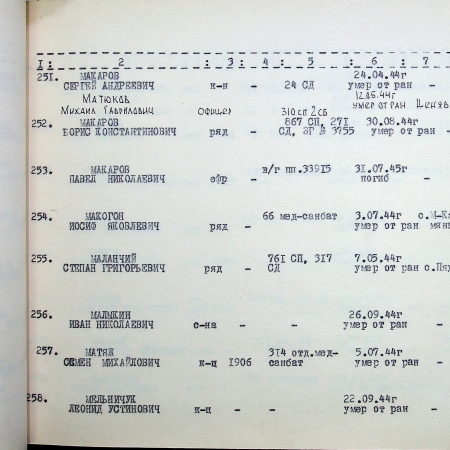 1: 2 : 3: 4 : 5 : 6 : 7
251. МАКАРОВ 24.04.44г
СЕРГЕЙ АНДРЕЕВИЧ к-н - 24 СД умер от ран -
МАТЮКОВ 12.05.44г
МИХАИЛ ГАВРИЛОВИЧ офицер 310 сп 2сб умер от ран
252. МАКАРОВ 867 СП, 271 30.08.44г
БОРИС КОНСТАНТИНОВИЧ ряд - СД, ЭГ № 3755 умер от ран -
253. МАКАРОВ в/г пп.33915 31.07.45г
ПАВЕЛ НИКОЛАЕВИЧ ефр - погиб -
254. МАКОГОН 66 мед-санбат 3.07.44г
ИОСИФ ЯКОВЛЕВИЧ ряд - умер от ран
255. МАЛАНЧИЙ 761 СП, 317 7.05.44г
СТЕПАН ГРИГОРЬЕВИЧ ряд - СД умер от ран
256. МАЛЫКИН 26.09.44г
ИВАН НИКОЛАЕВИЧ с-на - - умер от ран -
257. МАТЯЖ 314 отд.мед- 5.07.44г
СЕМЕН МИХАЙЛОВИЧ к-ц 1906 санбат умер от ран -
258. МЕЛЬНИЧУК 22.09.44г
ЛЕОНИД УСТИНОВИЧ к-ц - - умер от ран -